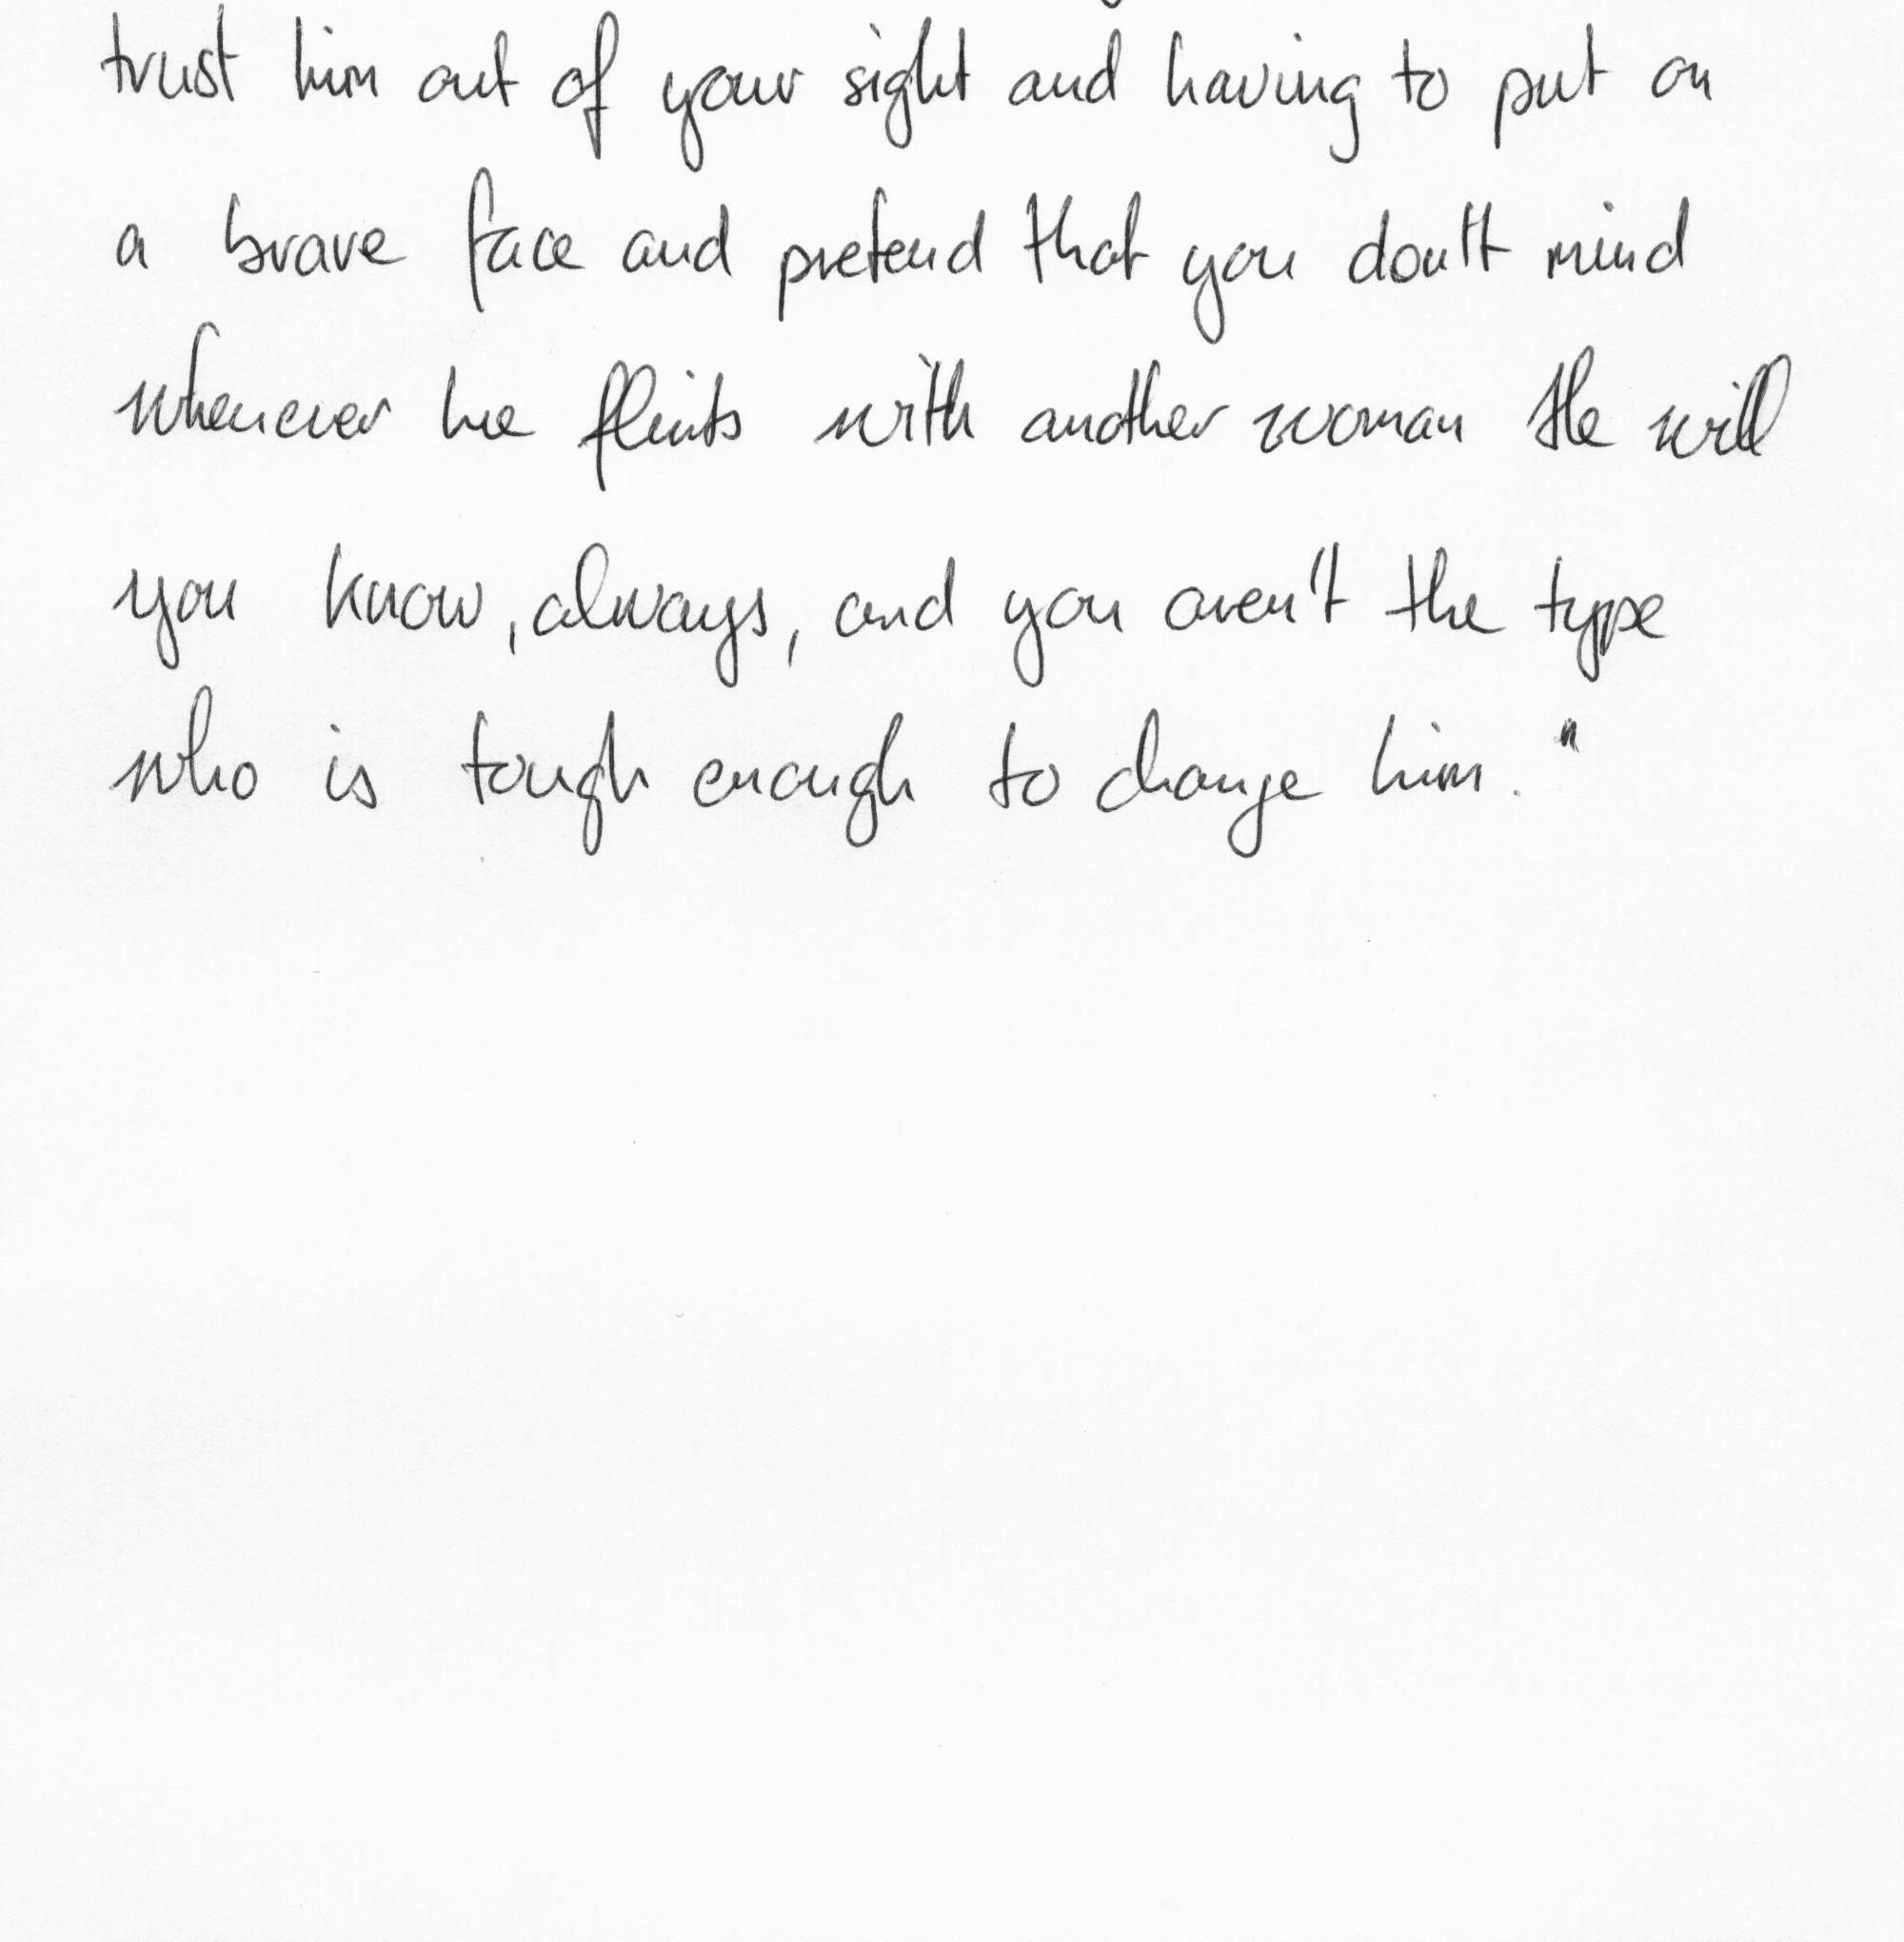 trust him out of your sight and having to put on
a brave face and pretend that you don't mind
whenever he flirts with another woman He will
you know, always, and you aren't the type
who is tough enough to change him."